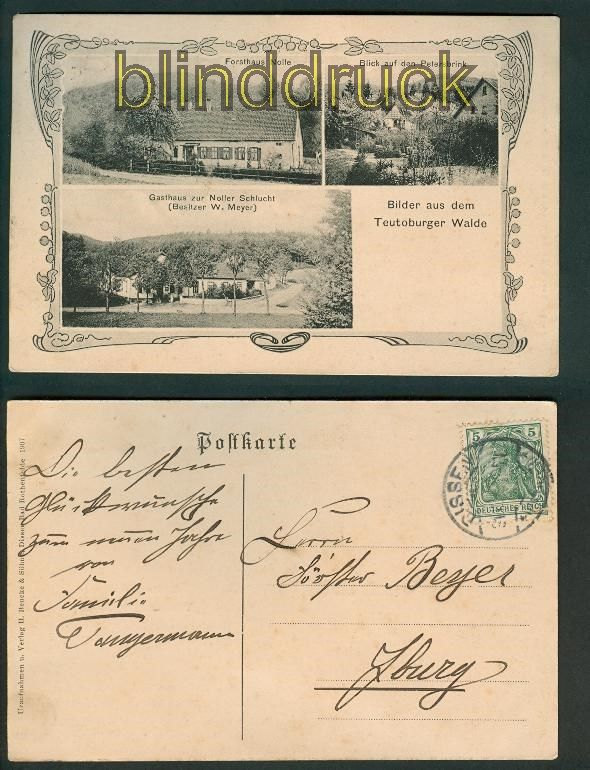 blinddruck
Forsthaus Nolle
Blick auf den Petersbrink
Gasthaus zur Noller Schlucht
(Besitzer W. Meyer)
Bilder aus dem
Teutoburger Walde
Postkarte
Die besten
Glückwünsche
zum neuen Jahre
von
Familie
Tangermann
Herrn
Förster Beyer
Iburg
5 5
DEUTSCHES REICH
DISSEN
Uraufnahmen u. Verlag H. Beucke & Söhne, Dissen-Bad Rothenfelde 1907